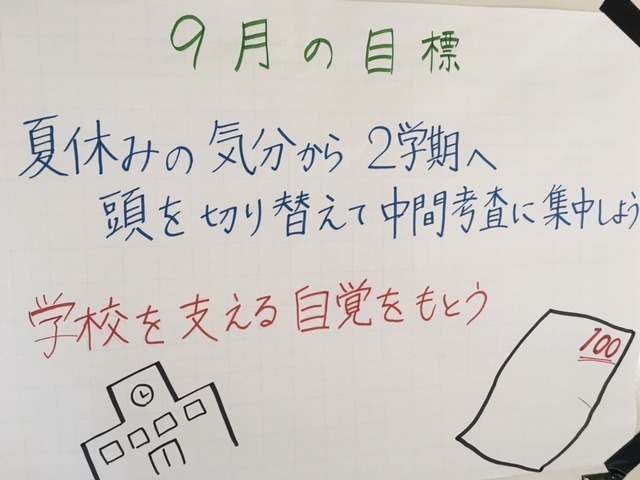 9月の目標
夏休みの気分から2学期へ
頭を切り替えて中間考査に集中しよう
学校を支える自覚をもとう
100